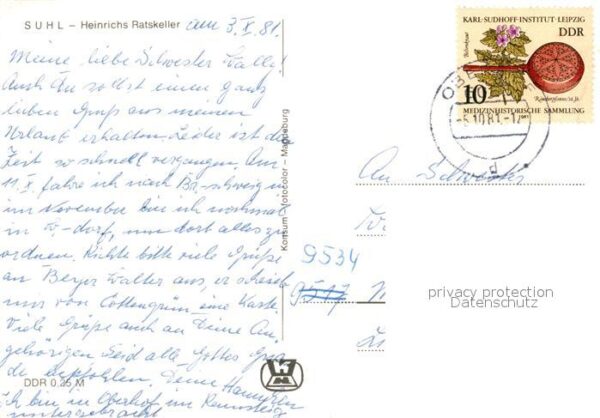 SUHL – Heinrichs Ratskeller am 3. X. 81.
Meine liebe Schwester Walli!
Auch Du sollst einen ganz
lieben Gruß aus meinem
Urlaub erhalten. Leider ist die
Zeit so schnell vergangen. Am
11. X. fahre ich nach Br-schweig u
im November bin ich nochmal
in -dorf, um dort alles zu
ordnen. Richte bitte viele Grüße
an Beyer Walter aus, er schrieb
mir von Cottengrün eine Karte.
Viele Grüße auch an Deine An-
gehörigen. Seid alle Gottes Gna-
de empfohlen. Deine
Ich bin in Oberhof am Rennsteig
untergebracht
DDR 0,25 M
Konsum – fotocolor – Magdeburg
KARL-SUDHOFF-INSTITUT · LEIPZIG
DDR
10
MEDIZINHISTORISCHE SAMMLUNG
-5.10.81-17
An Schwester
9534
9517
privacy protection
Datenschutz